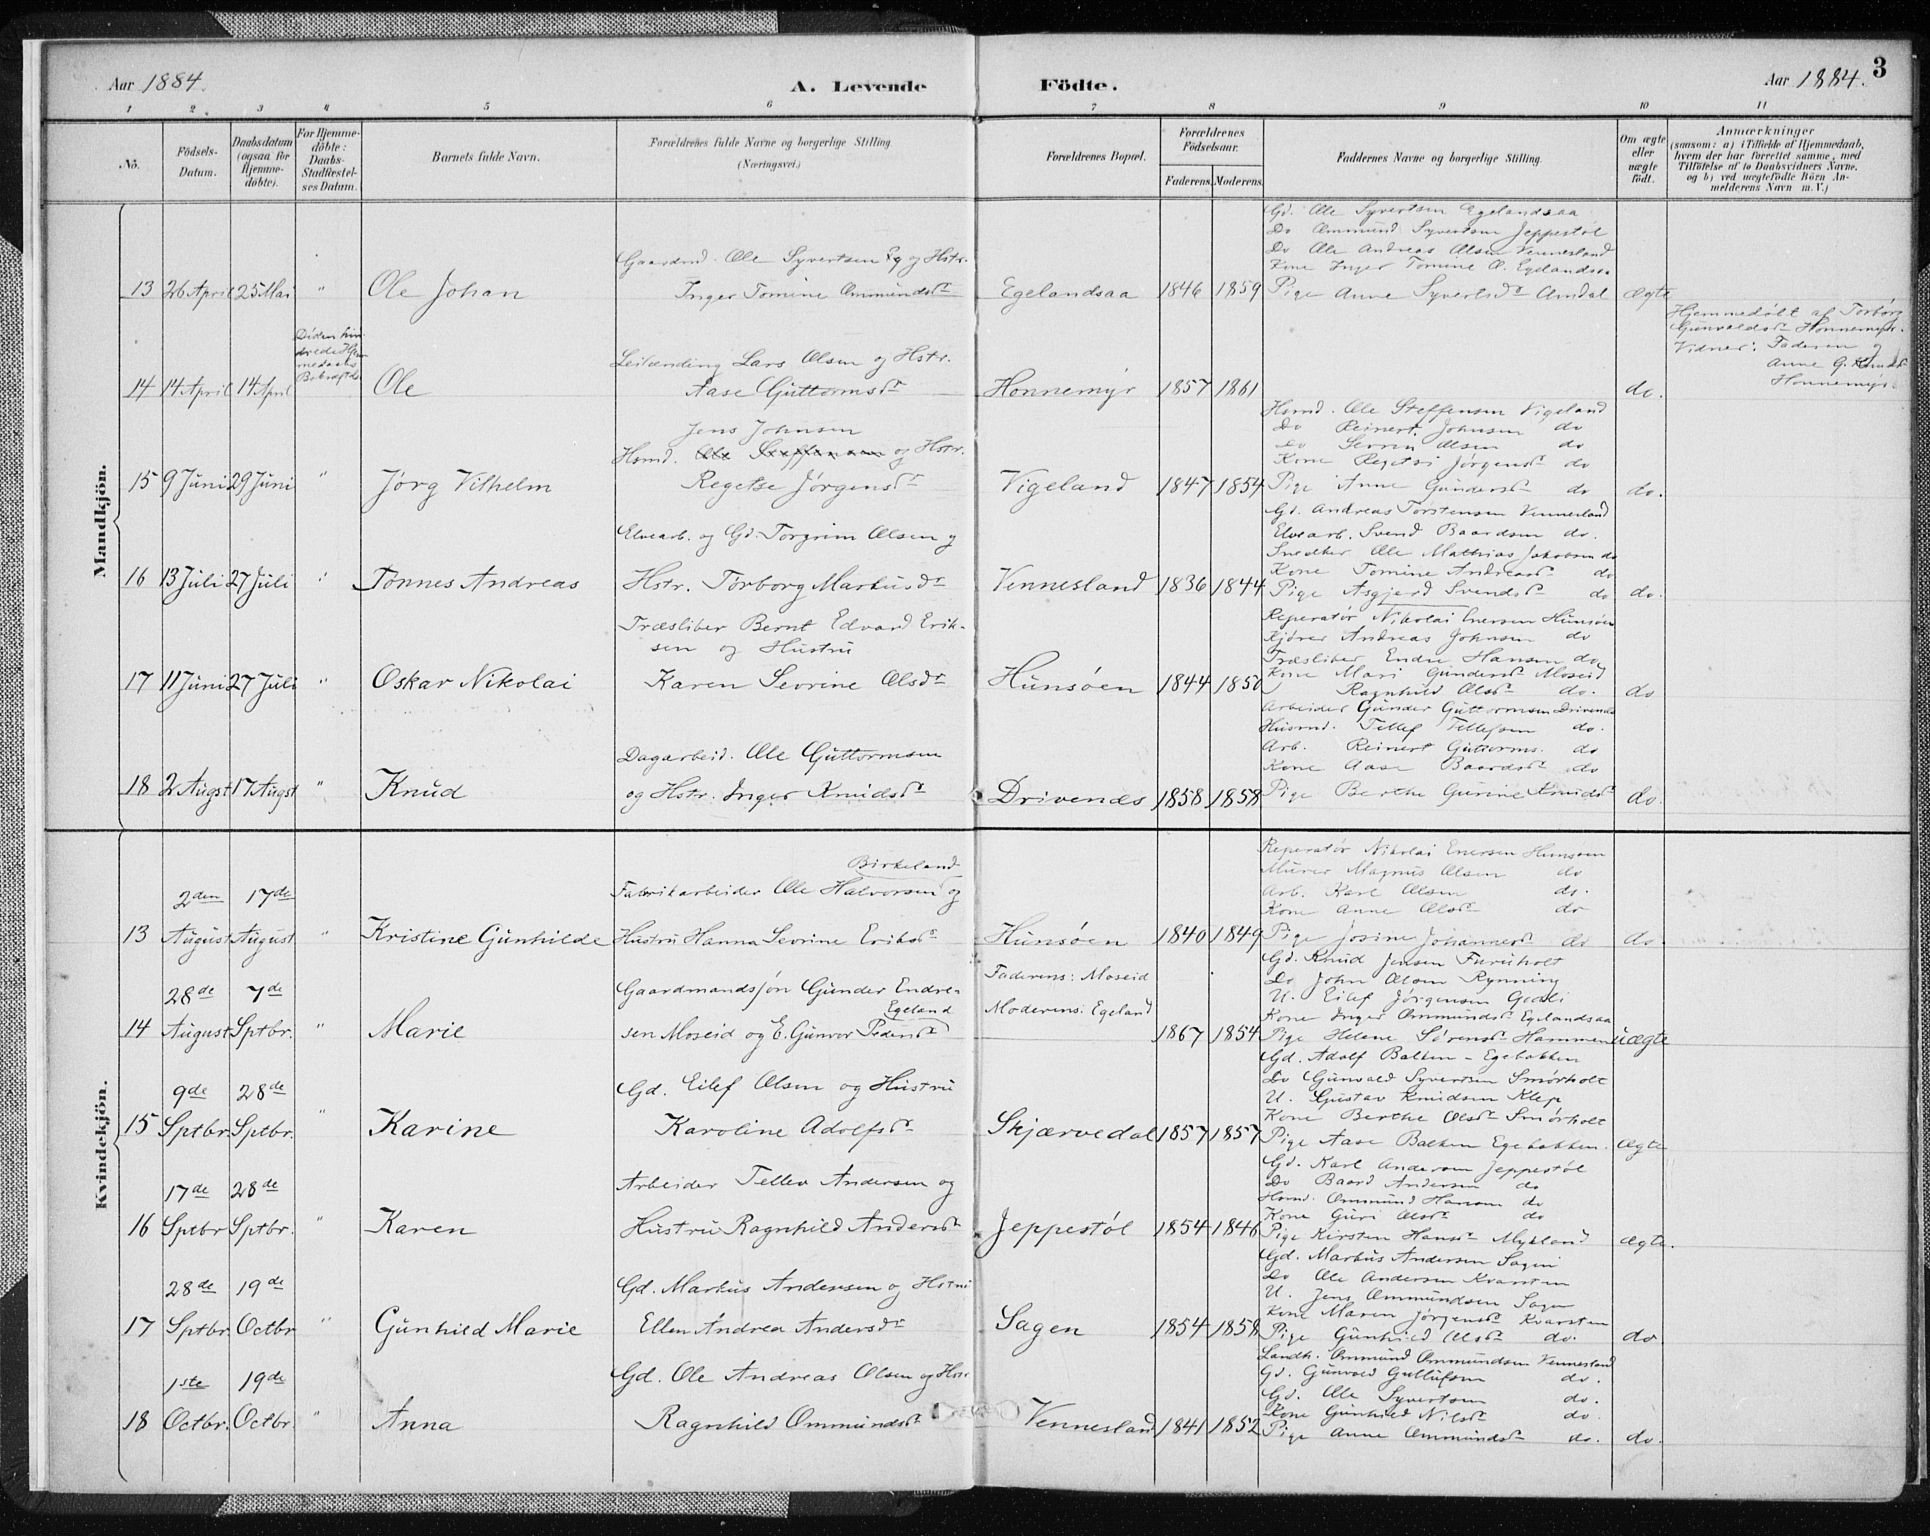 Aar 1884.
A. Levende Födte.
Aar 1884.
3
1 2 3 4 5 6 7 8 9 10 11
No.
Födsels-Datum.
Daabsdatum (ogsaa for Hjemme-döbte).
For Hjemme-döbte: Daabs-Stadfæstel-ses Datum.
Barnets fulde Navn.
Forældrenes fulde Navne og borgerlige Stilling. (Næringsvei.)
Forældrenes Bopæl.
Forældrenes Födselsaar.
Faderens. Moderens.
Faddernes Navne og borgerlige Stilling.
Om ægte eller uægte födt.
Anmærkninger
(saasom: a) i Tilfælde af Hjemmedaab,
hvem der har forrettet samme, med
Tilföielse af to Daabsvidners Navne,
og b) ved uægtefödte Börn An-
melderens Navn m. V.)
Mandkjön.
Gd. Ole Syvertsen Egelandsaa
Do Ommund Syvertsen Jeppestøl
Do Ole Andreas Olsen Vennesland
Kone Inger Tomine O. Egelandsaa
Gaardmd. Ole Syvertsen Eg og Hstr.
13 26 April 25 Mai " Ole Johan Inger Tomine Ommundsdr Egelandsaa 1846 1859 Pige Anne Syvertsdr Omdal ægte
Døden hin-
drede Hjem-
medaabs
Bekræftelse
Hjemmedøbt af Torborg
Gunvaldsdr Honnemyr.
Vidner: Faderen og
Anne G. Knudsdr
Honnemyr.
Leilænding Lars Olsen og Hstr.
14 14 April 14 April Ole Aase Guttormsdr Honnemyr 1857 1861 do.
Husmd. Ole Steffensen Vigeland
Do Reinert Johnsen do
Do Sevrin Olsen do
Kone Regetse Jørgensdr do
Jens Johnsen
Husmd. Ole Steffensen og Hstr.
15 9 Juni 29 Juni " Jørg Vilhelm Regetse Jørgensdr Vigeland 1847 1854 Pige Anne Gundersdr do do.
Gd. Andreas Torstensen Vennesland
Elvearb. Svend Baardsen do.
Snedker Ole Mathias Jakobsen do
Kone Tomine Andreasdr do
Elvearb. og Gd. Torgrim Olsen og
16 13 Juli 27 Juli " Tønnes Andreas Hstr. Torborg Markusdr Vennesland 1836 1844 Pige Asgjerd Svendsdr do do.
Reperatør Nikolai Enersen Hunsøen
Kjører Andreas Johnsen do
Træsliber Endre Hansen do
Kone Mari Gundersdr Moseid
Træsliber Bernt Edvard Erik-
sen og Hustru
17 11 Juni 27 Juli " Oskar Nikolai Karen Sevrine Olsdr Hunsøen 1844 1850 Ragnhild Olsdr do. do
Arbeider Gunder Guttormsen Drivenes
Husmd. Tellef Tellefsen do.
Arb. Reinert Guttorms. do
Kone Aase Baardsdr do
Dagarbeid. Ole Guttormsen
18 2 Augst 17 Augst " Knud og Hstr. Inger Knudsdr Drivenes 1858 1858 Pige Berthe Gurine Knudsdr do.
Kvindekjön.
Reperatør Nikolai Enersen Hunsøen
Murer Magnus Olsen do
Arb. Karl Olsen do.
Kone Anne Olsdr do
Birkeland
2den 17de Fabrikarbeider Ole Halvorsen og
13 August August " Kristine Gunhilde Hustru Hanna Sevrine Eriksdr Hunsøen 1840 1849 Pige Josine Johannesdr do do.
Gd. Knud Jensen Furuholt
Do John Olsen Rynning
U. Eilef Jørgensen Godli
Kone Inger Ommundsdr Egelandsaa
28de 7de Gaardmandssøn Gunder Endre- Faderens: Moseid
Egeland Moderens: Egeland
14 August Sptbr. " Marie sen Moseid og E. Gunvor Pedersdr 1867 1854 Pige Helene Sørensdr Hammen uægte
Gd. Adolf Balken - Egebakken
Do Gunvald Syvertsen Smørholt
U. Gustav Knudsen Klep
Kone Berthe Olsdr Smørholt
9de 28de Gd. Eilef Olsen og Hustru
15 Sptbr. Sptbr. " Karine Karoline Adolfsdr Skjærvedal 1857 1857 Pige Aase Balken Egebakken. ægte
Gd. Karl Andersen Jeppestøl
Do Baard Andersen do
Husmd. Ommund Hansen do
Kone Guri Olsdr do
17de 28de Arbeider Tellev Andersen og
16 Sptbr Sptbr. " Karen Hustru Ragnhild Andersdr Jeppestøl 1854 1846 Pige Kirsten Hansdr Mykland ægte.
Gd. Markus Andersen Sagen
Do Ole Andersen Kvarsten
U. Jens Ommundsen Sagen
Kone Maren Jørgensdr Kvarsten
28de 19de Gd. Markus Andersen og Hstru
17 Sptbr. Octbr " Gunhild Marie Ellen Andrea Andersdr Sagen 1854 1858 Pige Gunhild Olsdr do. do.
Landh. Ommund Ommundsen Vennesland
Gd. Gunvald Gullufsen do.
Gd. Ole Syvertsen do.
Kone Gunhild Nilsdr do
1ste 19de Gd. Ole Andreas Olsen og Hstr
18 Octbr. Octbr. " Anna Ragnhild Ommundsdr Vennesland 1841 1852 Pige Anne Ommundsdr do. do.